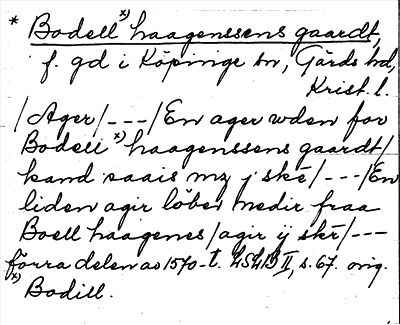 * Bodell x) haagenssens gaardt,
f. gd i Köpinge sn, Gärds hd,
Krist. l.
/Ager/---/En ager uden for
Bodell x) haagenssens gaardt/
kand saais mz j skē/---/En
liden agir löber nedir fraa
Boell haagenes/agir ij skē/---
förra delen av 1570-t. LSLB II, s. 67. orig.
x) Bodill.